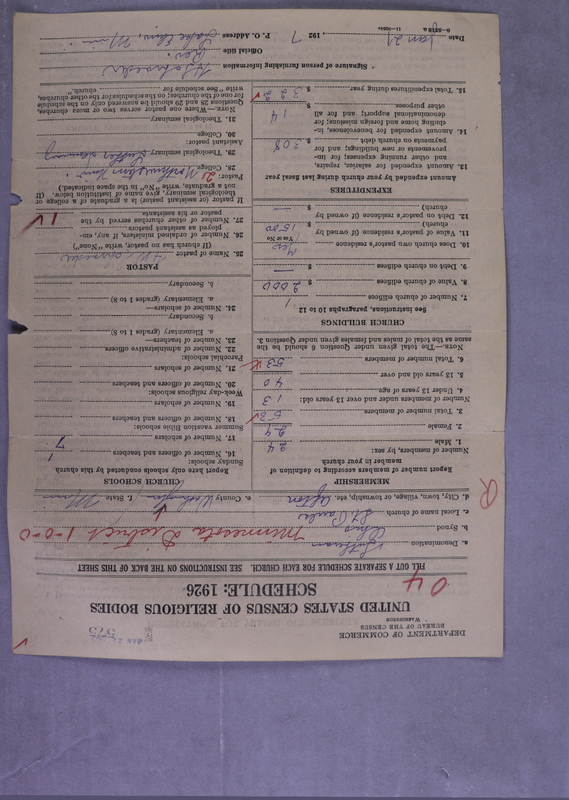 DEPARTMENT OF COMMERCE
BUREAU OF THE CENSUS
WASHINGTON
575
UNITED STATES CENSUS OF RELIGIOUS BODIES
SCHEDULE: 1926
04
FILL OUT A SEPARATE SCHEDULE FOR EACH CHURCH. SEE INSTRUCTIONS ON THE BACK OF THIS SHEET
a. Denomination Lutheran
b. Synod Ohio Minnesota District 1-0-0
c. Local name of church St Paul
d. City, town, village, or township, etc. Afton e. County Washington f. State Minn
MEMBERSHIP
Report number of members according to definition of member in your church
Number of members, by sex:
1. Male 24
2. Female 29
3. Total number of members 53
Number of members under and over 13 years old:
4. Under 13 years of age 13
5. 13 years old and over 40
6. Total number of members 53
NOTE.—The total given under Question 6 should be the same as the total of males and females given under Question 3.
CHURCH BUILDINGS
See instructions, paragraphs 10 to 12
7. Number of church edifices 1
8. Value of church edifices $ 2000
9. Debt on church edifices $ —
10. Does church own pastor's residence Yes
(Yes or No)
11. Value of pastor's residence (if owned by church) $ 1500
12. Debt on pastor's residence (if owned by church) $ —
EXPENDITURES
Amount expended by your church during last fiscal year
13. Amount expended for salaries, repairs, and other running expenses; for improvements or new buildings; and for payments on church debt $ 308
14. Amount expended for benevolences, including home and foreign missions; for denominational support; and for all other purposes $ 14
15. Total expenditures during year $ 322
CHURCH SCHOOLS
Report here only schools conducted by this church
Sunday schools:
16. Number of officers and teachers 1
17. Number of scholars 7
Summer vacation Bible schools:
18. Number of officers and teachers
19. Number of scholars
Week-day religious schools:
20. Number of officers and teachers
21. Number of scholars
Parochial schools:
22. Number of administrative officers
23. Number of teachers—
a. Elementary (grades 1 to 8)
b. Secondary
24. Number of scholars—
a. Elementary (grades 1 to 8)
b. Secondary
PASTOR
25. Name of pastor
(If church has no pastor, write "None")
26. Number of ordained ministers, if any, employed as assistant pastors
27. Number of other churches served by the pastor or his assistants 1
If pastor (or assistant pastor) is a graduate of a college or theological seminary, give name of institution below. (If not a graduate, write "No" in the space indicated.)
Pastor:
28. College Northwestern
29. Theological seminary Luther Seminary
Assistant pastor:
30. College
31. Theological seminary
NOTE.—Where one pastor serves two or more churches, Questions 28 and 29 should be answered only on the schedule for one of the churches; on the schedules for the other churches, write "See schedule for church."
Signature of person furnishing information
Official title Rev.
Date Jan 29, 1927 P. O. Address Lake Elmo, Minn.